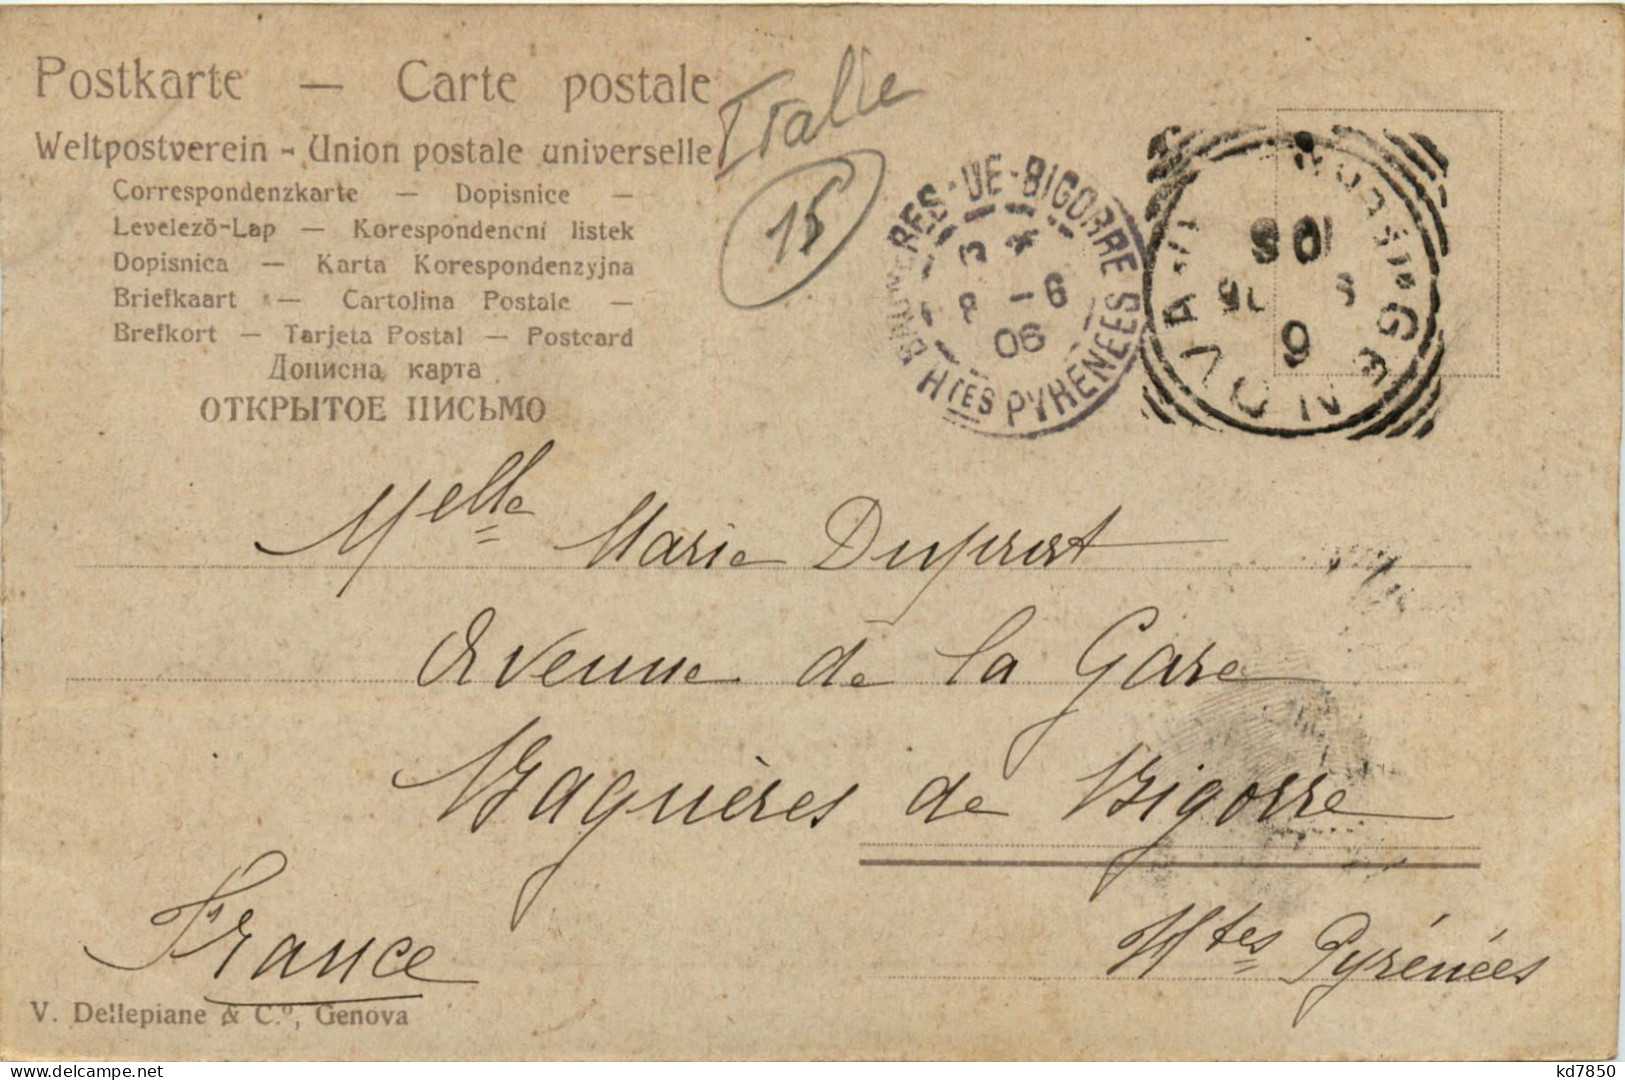 Postkarte — Carte postale
Weltpostverein - Union postale universelle
Correspondenzkarte — Dopisnice —
Levelező-Lap — Korespondencní listek
Dopisnica — Karta Korespondenzyjna
Briefkaart — Cartolina Postale —
Brefkort — Tarjeta Postal — Postcard
Дописна карта
ОТКРЫТОЕ ПИСЬМО
Italie
15
BAGNERES-DE-BIGORRE
3 *
2 -6
06
Htes PYRENEES
GENOVA
Melle Marie Duprat
Avenue de la Gare
Bagnères de Bigorre
Htes Pyrénées
France
V. Dellepiane & C.º, Genova
kd7850